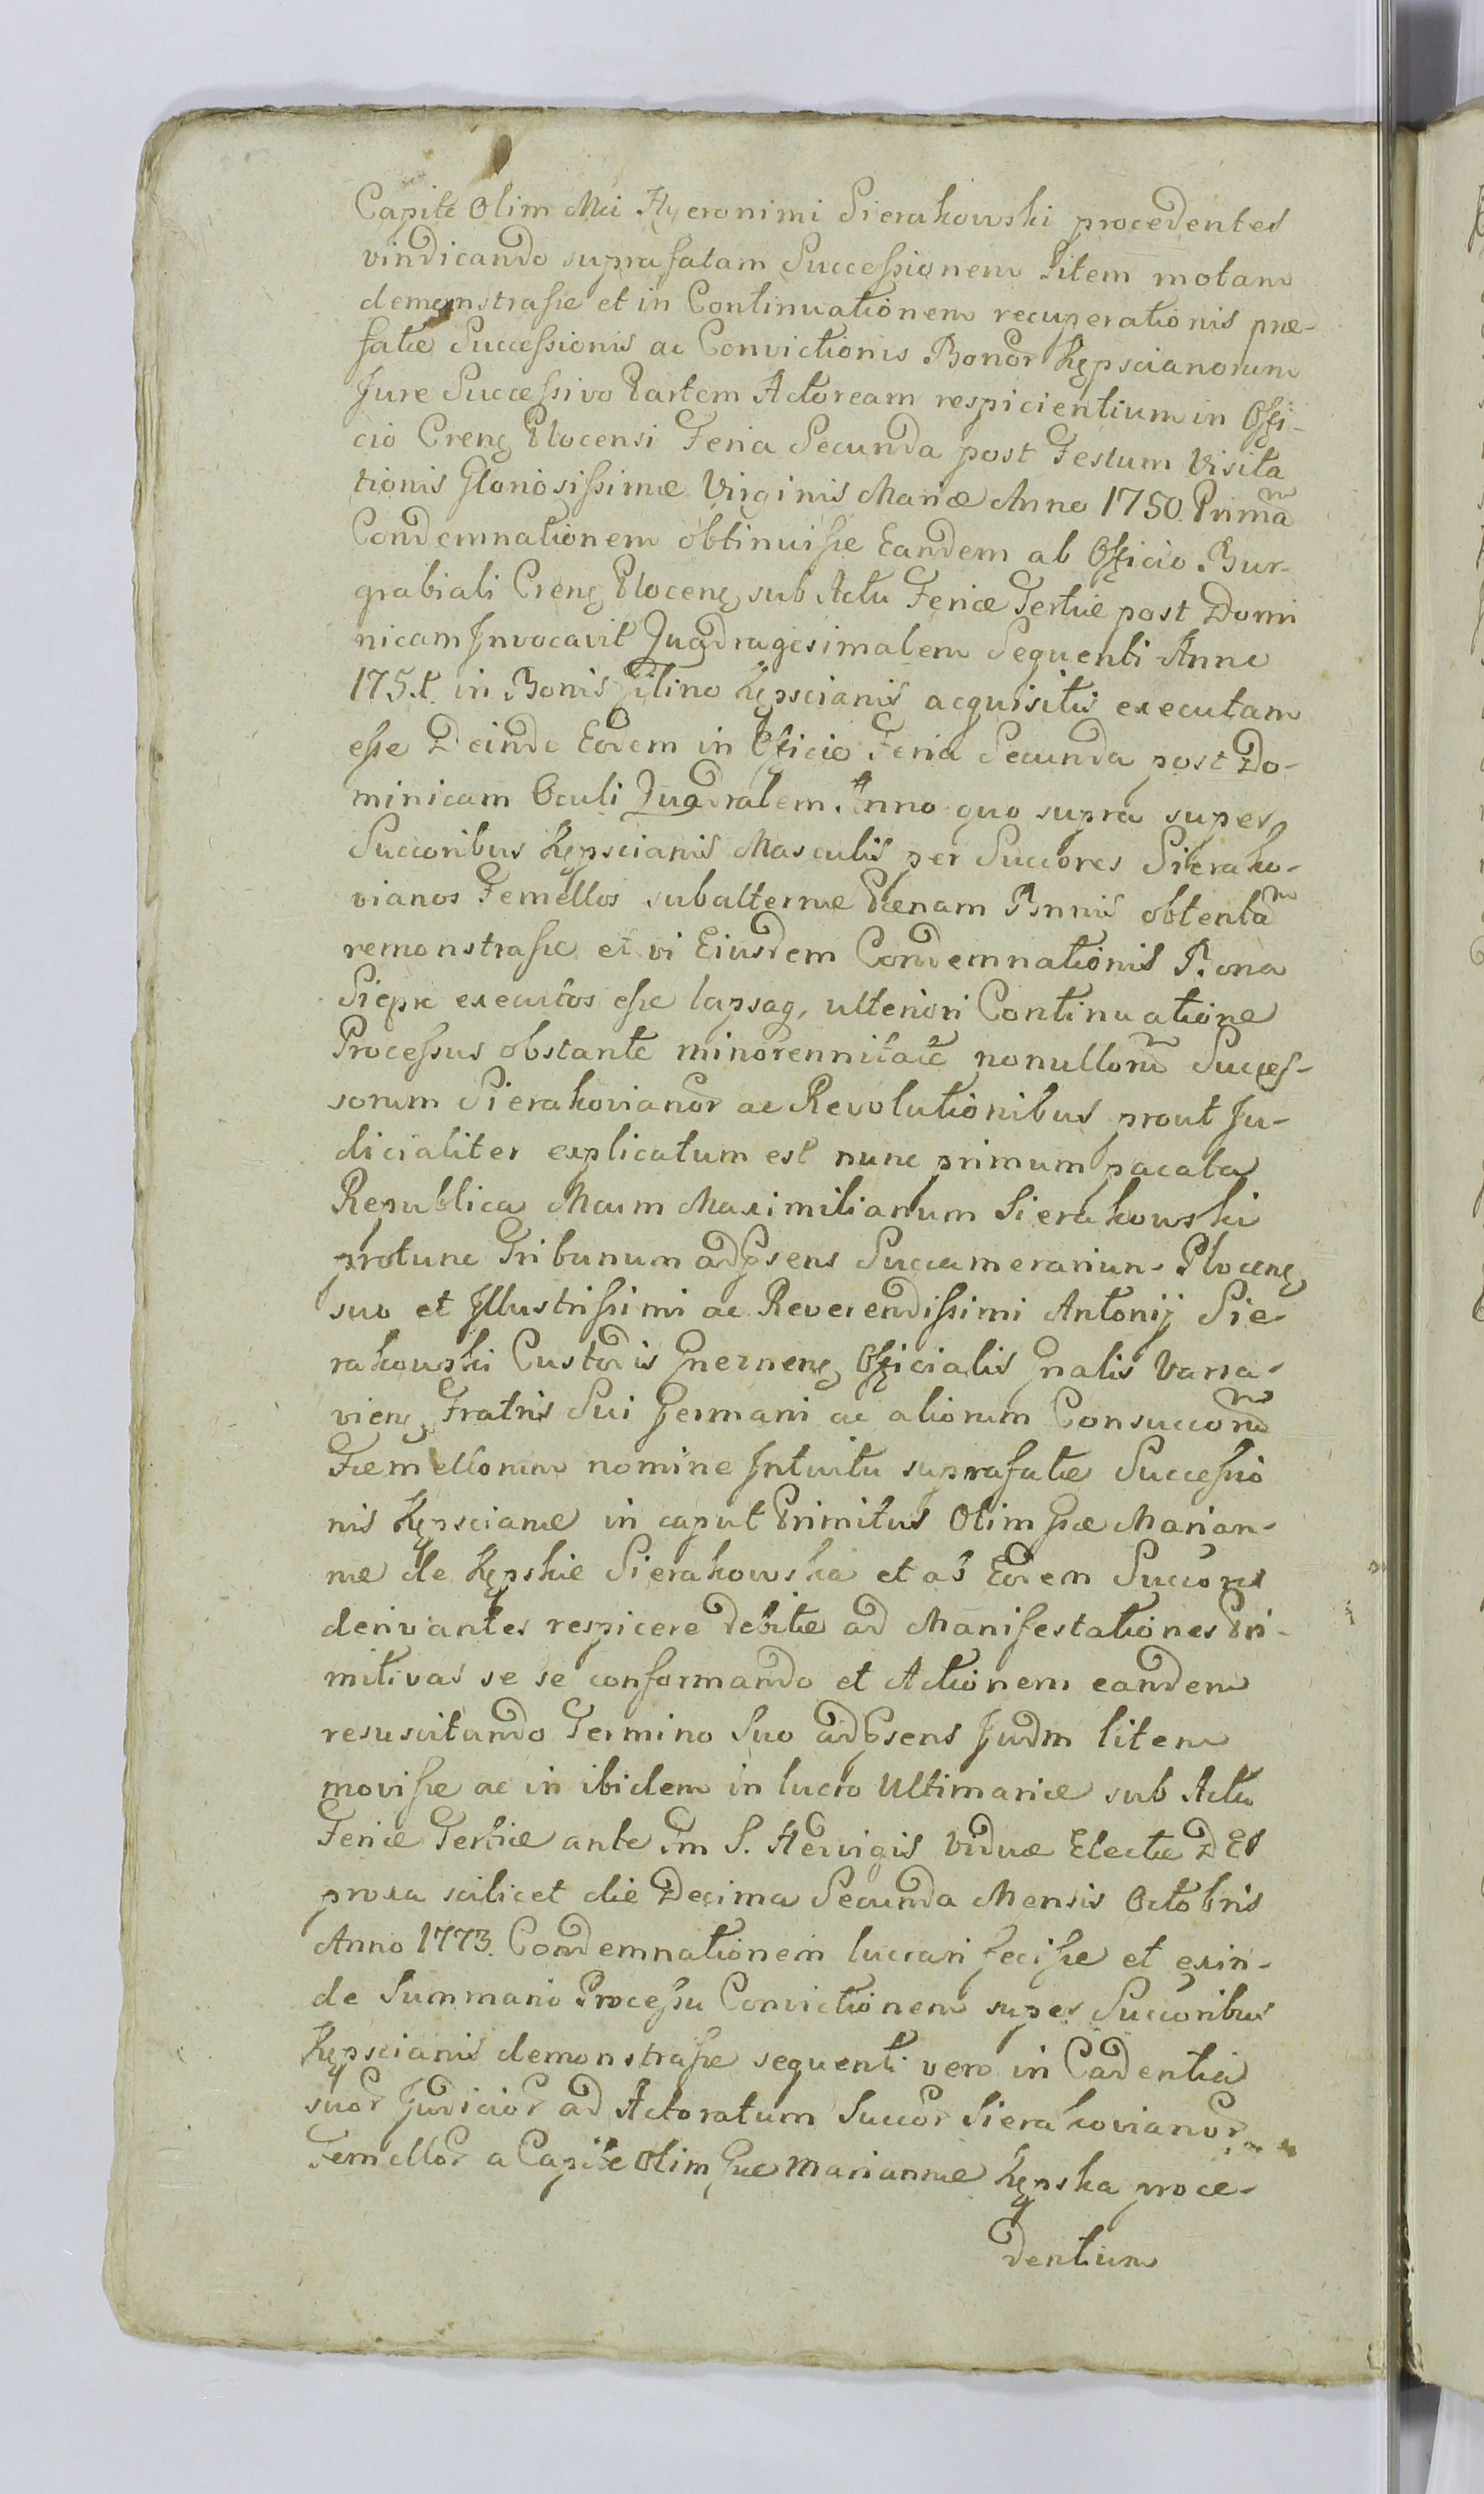 Capite Olim Mci Hyeronimi Sierakowski procedentes
vindicando suprafatam Successionem litem motam
demonstrasse et in Continuationem recuperationis præ-
fatæ Successionis ac Convictionis Bonor Kępscianorum
Jure Successivo Partem Actoream respicientium in Offi-
cio Creng Plocensi Feria Secunda post Festum Visita
tionis Gloriosissimæ Virginis Mariæ Anno 1750. Primam
Condemnationem obtinuisse Eandem ab Officio Bur-
grabiali Creng Ploceng sub Actu Feriæ Tertiæ post Domi
nicam Invocavit Quadragesimalem Sequenti Anno
1751. in Bonis Zilino Kępscianis acquisitis executam
esse Deinde Eodem in Officio Feria Secunda post Do-
minicam Oculi Quadralem Anno quo supra super
Succoribus Kępscianis Masculis per Succores Sierako-
vianos Femellos subalternæ Pænam Bnnis obtentam
remonstrasse et vi Eiusdem Condemnationis Bona
executos esse lapsaq, ulteriori Continuatione
Processus obstante minorennitate nonullorum Succes-
sorum Sierakovianor ac Revolutionibus prout Ju-
dicialiter explicatum est nunc primum pacata
Republica Mcum Maximilianum Sierakowski
protunc Tribunum adpsens Succamerarium Ploceng
suo et Illustrissimi ac Reverendissimi Antonij Sie-
rakowski Custodis Gnezneng Officialis Gnalis Varsa-
vieng Fratris Sui Germani ac aliorum Consuccorum
Fæmellorum nomine Intuitu suprafatæ Successio
nis Kępscianæ in caput Primitus Olim Gsæ Marian-
næ de Kępskie Sierakowska et ab Eodem Succores
derivantes respicere debitæ ad Manifestationes Pri-
mitivas se se conformando et Actionem eandem
resuscitando Termino Suo adpsens Judm litem
movisse ac in ibidem in lucro Ultimariæ sub Actu
Feriæ Tertiæ ante Fm S. Hedvigis Viduæ Electæ DEI
proxa scilicet die Decima Secunda Mensis Octobris
Anno 1773. Condemnationem lucrari fecisse et exin-
de Summario Processu Convictionem super Succoribus
Kępscianis demonstrasse sequenti vero in Cadentia
suor Judicior ad Actoratum Succor Sierakovianor
Femellor a Capite Olim Gsæ Mariannæ Kępska proce-
dentium